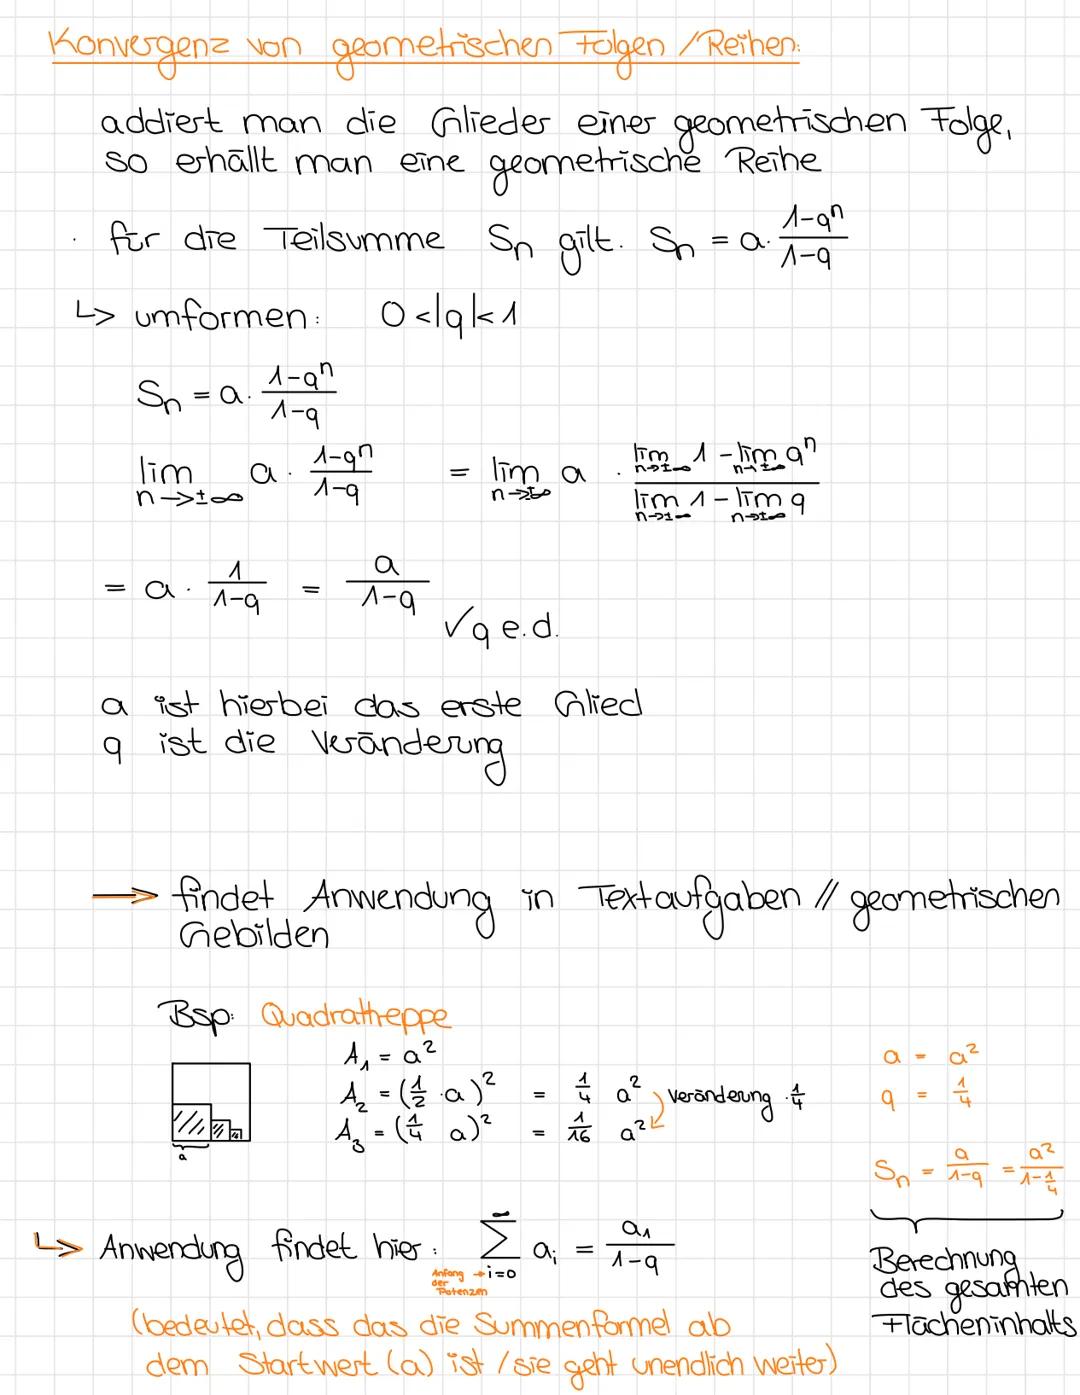 Konvergenz von geometrischen Folgen / Reihen:
addiert man die Glieder einer geometrischen Folge,
so erhällt man eine geometrische Reihe
· für die Teilsumme Sn gilt: Sn = a · (1-q^n)/(1-q)
↳ umformen: 0<|q|<1
Sn = a · (1-q^n)/(1-q)
lim n→±∞ a · (1-q^n)/(1-q) = lim n→±∞ a · (lim n→±∞ 1 - lim n→±∞ q^n)/(lim n→±∞ 1 - lim n→±∞ q)
= a · 1/(1-q) = a/(1-q)
✓ q.e.d.
a ist hierbei das erste Glied
q ist die Veränderung
→ findet Anwendung in Textaufgaben // geometrischen
Gebilden
Bsp: Quadrattreppe
A₁ = a²
A₂ = (1/2 · a)² = 1/4 a²
A₃ = (1/4 a)² = 1/16 a²
Veränderung · 1/4
a
a = a²
q = 1/4
Sn = a/(1-q) = a²/(1-1/4)
Berechnung
des gesamten
Flächeninhalts
↳ Anwendung findet hier: ∞ Σ i=0 aᵢ = a₁/(1-q)
Anfang →
der
Potenzen
(bedeutet, dass das die Summenformel ab
dem Startwert (a) ist / sie geht unendlich weiter)